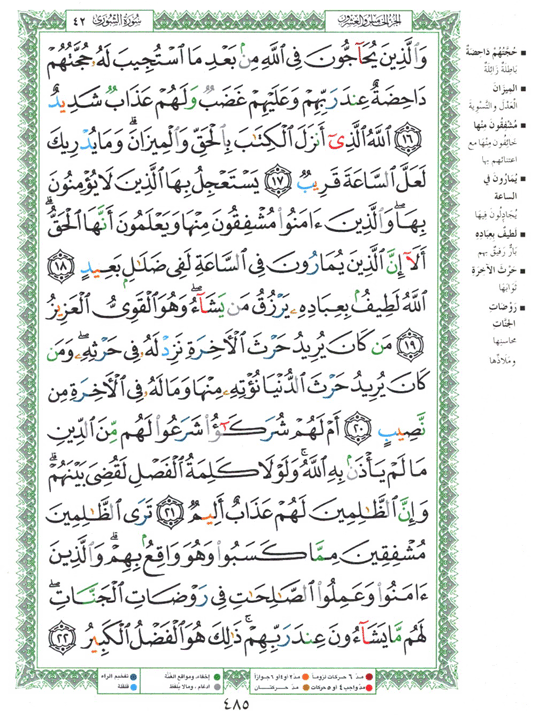 الجزء الخامس والعشرون
سورة الشورى
٤٢
وَالَّذِينَ يُحَاجُّونَ فِي اللَّهِ مِنْ بَعْدِ مَا اسْتُجِيبَ لَهُ حُجَّتُهُمْ
دَاحِضَةٌ عِنْدَ رَبِّهِمْ وَعَلَيْهِمْ غَضَبٌ وَلَهُمْ عَذَابٌ شَدِيدٌ
﴿١٦﴾ اللَّهُ الَّذِي أَنْزَلَ الْكِتَٰبَ بِالْحَقِّ وَالْمِيزَانَ ۗ وَمَا يُدْرِيكَ
لَعَلَّ السَّاعَةَ قَرِيبٌ ﴿١٧﴾ يَسْتَعْجِلُ بِهَا الَّذِينَ لَا يُؤْمِنُونَ
بِهَا ۖ وَالَّذِينَ ءَامَنُوا مُشْفِقُونَ مِنْهَا وَيَعْلَمُونَ أَنَّهَا الْحَقُّ ۗ
أَلَا إِنَّ الَّذِينَ يُمَارُونَ فِي السَّاعَةِ لَفِي ضَلَٰلٍ بَعِيدٍ ﴿١٨﴾
اللَّهُ لَطِيفٌ بِعِبَادِهِ يَرْزُقُ مَنْ يَشَاءُ ۖ وَهُوَ الْقَوِيُّ الْعَزِيزُ
﴿١٩﴾ مَنْ كَانَ يُرِيدُ حَرْثَ الْءَاخِرَةِ نَزِدْ لَهُ فِي حَرْثِهِ ۖ وَمَنْ
كَانَ يُرِيدُ حَرْثَ الدُّنْيَا نُؤْتِهِ مِنْهَا وَمَا لَهُ فِي الْءَاخِرَةِ مِنْ
نَصِيبٍ ﴿٢٠﴾ أَمْ لَهُمْ شُرَكَٰٓؤُا شَرَعُوا لَهُمْ مِنَ الدِّينِ
مَا لَمْ يَأْذَنْ بِهِ اللَّهُ ۚ وَلَوْلَا كَلِمَةُ الْفَصْلِ لَقُضِيَ بَيْنَهُمْ ۗ
وَإِنَّ الظَّٰلِمِينَ لَهُمْ عَذَابٌ أَلِيمٌ ﴿٢١﴾ تَرَى الظَّٰلِمِينَ
مُشْفِقِينَ مِمَّا كَسَبُوا وَهُوَ وَاقِعٌ بِهِمْ ۗ وَالَّذِينَ
ءَامَنُوا وَعَمِلُوا الصَّالِحَاتِ فِي رَوْضَاتِ الْجَنَّاتِ ۖ
لَهُمْ مَا يَشَاءُونَ عِنْدَ رَبِّهِمْ ۚ ذَٰلِكَ هُوَ الْفَضْلُ الْكَبِيرُ ﴿٢٢﴾
حُجَّتُهُمْ دَاحِضَةٌ
باطلة زائلة
الميزان
العدل والتسوية
مشفقون منها
خائفون منها مع
اعتنائهم بها
يمارون في
الساعة
يجادلون فيها
لطيف بعباده
بارٌّ رفيق بهم
حرث الآخرة
ثوابها
روضات
الجنات
محاسنها
وملاذّها
مدّ ٦ حركات لزوماً
مدّ ٢ أو ٤ أو ٦ جوازاً
إخفاء، ومواقع الغنّة
تفخيم الراء
مدّ واجب ٤ أو ٥ حركات
مدّ حركتان
ادغام، وما لا يلفظ
قلقلة
٤٨٥